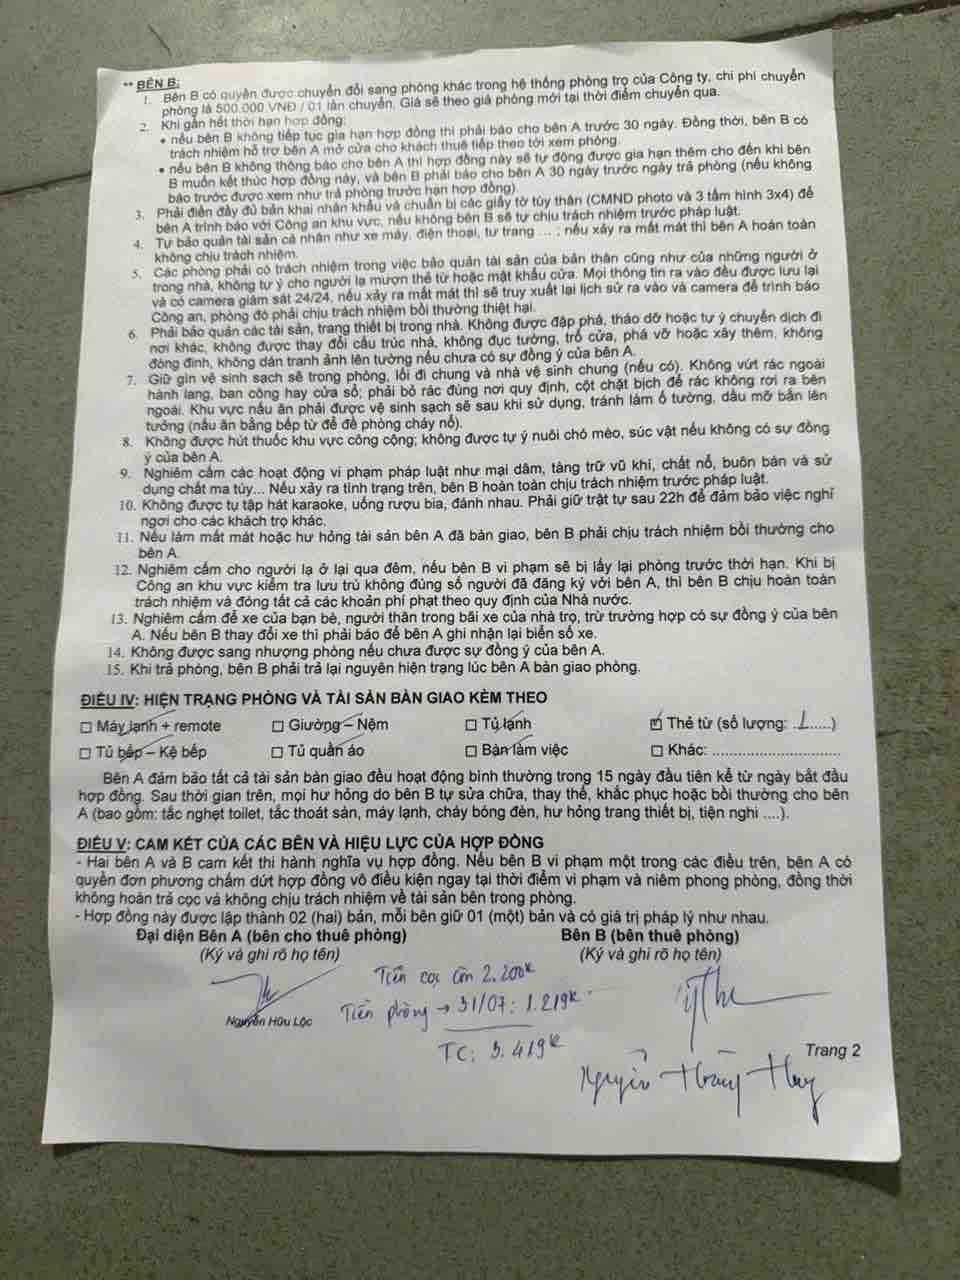 ** BÊN B:
1. Bên B có quyền được chuyển đổi sang phòng khác trong hệ thống phòng trọ của Công ty, chi phí chuyển
phòng là 500.000 VNĐ / 01 lần chuyển. Giá sẽ theo giá phòng mới tại thời điểm chuyển qua.
2. Khi gần hết thời hạn hợp đồng:
• nếu bên B không tiếp tục gia hạn hợp đồng thì phải báo cho bên A trước 30 ngày. Đồng thời, bên B có
trách nhiệm hỗ trợ bên A mở cửa cho khách thuê tiếp theo tới xem phòng.
• nếu bên B không thông báo cho bên A thì hợp đồng này sẽ tự động được gia hạn thêm cho đến khi bên
B muốn kết thúc hợp đồng này, và bên B phải báo cho bên A 30 ngày trước ngày trả phòng (nếu không
báo trước được xem như trả phòng trước hạn hợp đồng).
3. Phải điền đầy đủ bản khai nhân khẩu và chuẩn bị các giấy tờ tùy thân (CMND photo và 3 tấm hình 3x4) để
bên A trình báo với Công an khu vực, nếu không bên B sẽ tự chịu trách nhiệm trước pháp luật.
4. Tự bảo quản tài sản cá nhân như xe máy, điện thoại, tư trang ... ; nếu xảy ra mất mát thì bên A hoàn toàn
không chịu trách nhiệm.
5. Các phòng phải có trách nhiệm trong việc bảo quản tài sản của bản thân cũng như của những người ở
trong nhà, không tự ý cho người lạ mượn thẻ từ hoặc mật khẩu cửa. Mọi thông tin ra vào đều được lưu lại
và có camera giám sát 24/24, nếu xảy ra mất mát thì sẽ truy xuất lại lịch sử ra vào và camera để trình báo
Công an, phòng đó phải chịu trách nhiệm bồi thường thiệt hại.
6. Phải bảo quản các tài sản, trang thiết bị trong nhà. Không được đập phá, tháo dỡ hoặc tự ý chuyển dịch đi
nơi khác, không được thay đổi cấu trúc nhà, không đục tường, trổ cửa, phá vỡ hoặc xây thêm, không
đóng đinh, không dán tranh ảnh lên tường nếu chưa có sự đồng ý của bên A.
7. Giữ gìn vệ sinh sạch sẽ trong phòng, lối đi chung và nhà vệ sinh chung (nếu có). Không vứt rác ngoài
hành lang, ban công hay cửa sổ; phải bỏ rác đúng nơi quy định, cột chặt bịch để rác không rơi ra bên
ngoài. Khu vực nấu ăn phải được vệ sinh sạch sẽ sau khi sử dụng, tránh làm ố tường, dầu mỡ bắn lên
tường (nấu ăn bằng bếp từ để đề phòng cháy nổ).
8. Không được hút thuốc khu vực công cộng; không được tự ý nuôi chó mèo, súc vật nếu không có sự đồng
ý của bên A.
9. Nghiêm cấm các hoạt động vi phạm pháp luật như mại dâm, tàng trữ vũ khí, chất nổ, buôn bán và sử
dụng chất ma túy... Nếu xảy ra tình trạng trên, bên B hoàn toàn chịu trách nhiệm trước pháp luật.
10. Không được tụ tập hát karaoke, uống rượu bia, đánh nhau. Phải giữ trật tự sau 22h để đảm bảo việc nghỉ
ngơi cho các khách trọ khác.
11. Nếu làm mất mát hoặc hư hỏng tài sản bên A đã bàn giao, bên B phải chịu trách nhiệm bồi thường cho
bên A.
12. Nghiêm cấm cho người lạ ở lại qua đêm, nếu bên B vi phạm sẽ bị lấy lại phòng trước thời hạn. Khi bị
Công an khu vực kiểm tra lưu trú không đúng số người đã đăng ký với bên A, thì bên B chịu hoàn toàn
trách nhiệm và đóng tất cả các khoản phí phạt theo quy định của Nhà nước.
13. Nghiêm cấm để xe của bạn bè, người thân trong bãi xe của nhà trọ, trừ trường hợp có sự đồng ý của bên
A. Nếu bên B thay đổi xe thì phải báo để bên A ghi nhận lại biển số xe.
14. Không được sang nhượng phòng nếu chưa được sự đồng ý của bên A.
15. Khi trả phòng, bên B phải trả lại nguyên hiện trạng lúc bên A bàn giao phòng.
ĐIỀU IV: HIỆN TRẠNG PHÒNG VÀ TÀI SẢN BÀN GIAO KÈM THEO
☐ Máy lạnh + remote ☐ Giường – Nệm ☐ Tủ lạnh ☑ Thẻ từ (số lượng: ..1.....)
☐ Tủ bếp – Kệ bếp ☐ Tủ quần áo ☐ Bàn làm việc ☐ Khác: ......................
Bên A đảm bảo tất cả tài sản bàn giao đều hoạt động bình thường trong 15 ngày đầu tiên kể từ ngày bắt đầu
hợp đồng. Sau thời gian trên, mọi hư hỏng do bên B tự sửa chữa, thay thế, khắc phục hoặc bồi thường cho bên
A (bao gồm: tắc nghẹt toilet, tắc thoát sàn, máy lạnh, cháy bóng đèn, hư hỏng trang thiết bị, tiện nghi ....).
ĐIỀU V: CAM KẾT CỦA CÁC BÊN VÀ HIỆU LỰC CỦA HỢP ĐỒNG
- Hai bên A và B cam kết thi hành nghĩa vụ hợp đồng. Nếu bên B vi phạm một trong các điều trên, bên A có
quyền đơn phương chấm dứt hợp đồng vô điều kiện ngay tại thời điểm vi phạm và niêm phong phòng, đồng thời
không hoàn trả cọc và không chịu trách nhiệm về tài sản bên trong phòng.
- Hợp đồng này được lập thành 02 (hai) bản, mỗi bên giữ 01 (một) bản và có giá trị pháp lý như nhau.
Đại diện Bên A (bên cho thuê phòng) Bên B (bên thuê phòng)
(Ký và ghi rõ họ tên) (Ký và ghi rõ họ tên)
Tiền cọc còn 2.200k
Tiền phòng → 31/07: 1.219k
Nguyễn Hữu Lộc
TC: 3.419k
Trang 2
Nguyễn Hoàng Huy